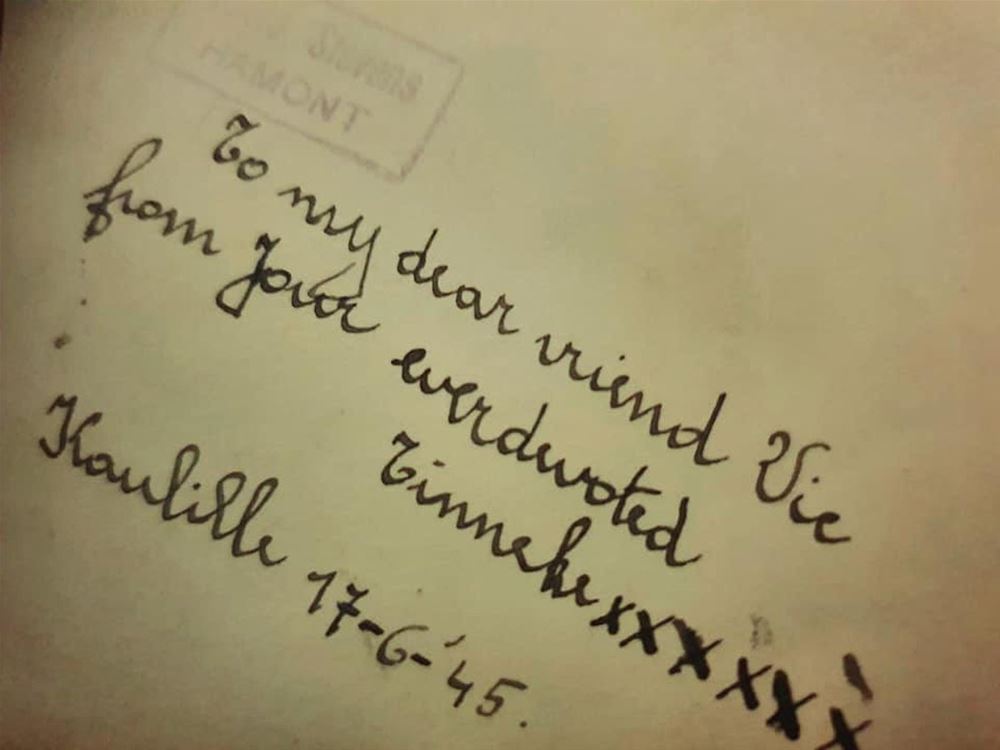 Stevens
HAMONT
To my dear vriend Vic
from Your everdevoted
Tinneke xxxxxx
Kaulille 17-6-'45.